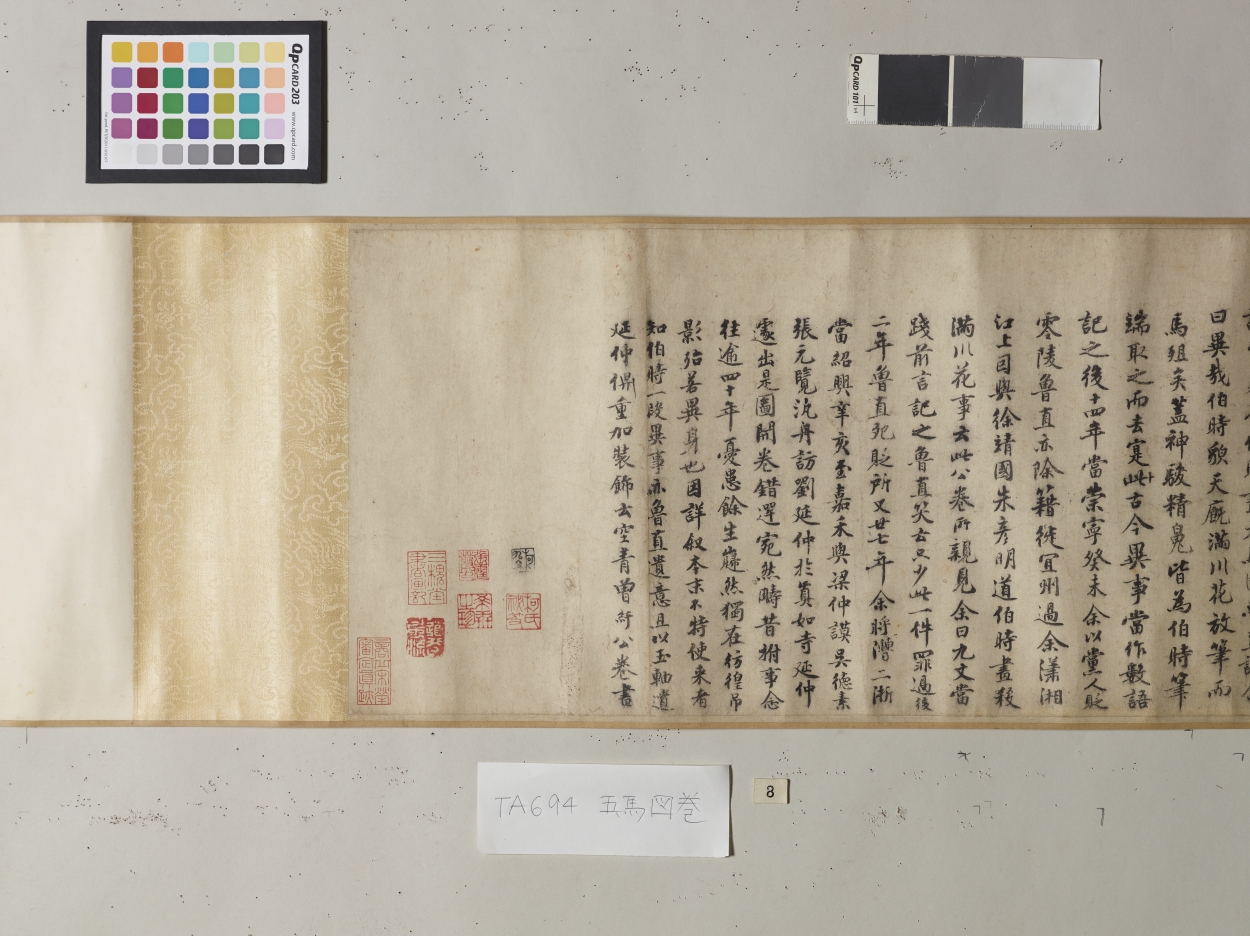 曰異哉伯時貌天厩滿川花放筆而
馬殂矣蓋神駿精魄皆為伯時筆
端取之而去寔此古今異事當作數語
記之後十四年當崇寧癸未余以黨人貶
零陵魯直亦除籍徙宜州過余瀟湘
江上因與徐靖國朱彥明道伯時畫殺
滿川花事云此公卷所親見余曰九丈當
踐前言記之魯直笑云只少此一件罪過後
二年魯直死貶所又廿七年余將漕二浙
當紹興辛亥至嘉禾與梁仲謨吳德素
張元覽汎舟訪劉延仲於真如寺延仲
遽出是圖開卷錯遌宛然疇昔拊事念
往逾四十年憂患餘生巋然獨在彷徨弔
影殆若異身也因詳叙本末不特使来者
知伯時一段異事亦魯直遺意且以玉軸遺
延仲俾重加装飾云空青曾紆公卷書
QpCARD 203
www.qpcard.com
QpCARD 101
TA694 五馬図巻
8